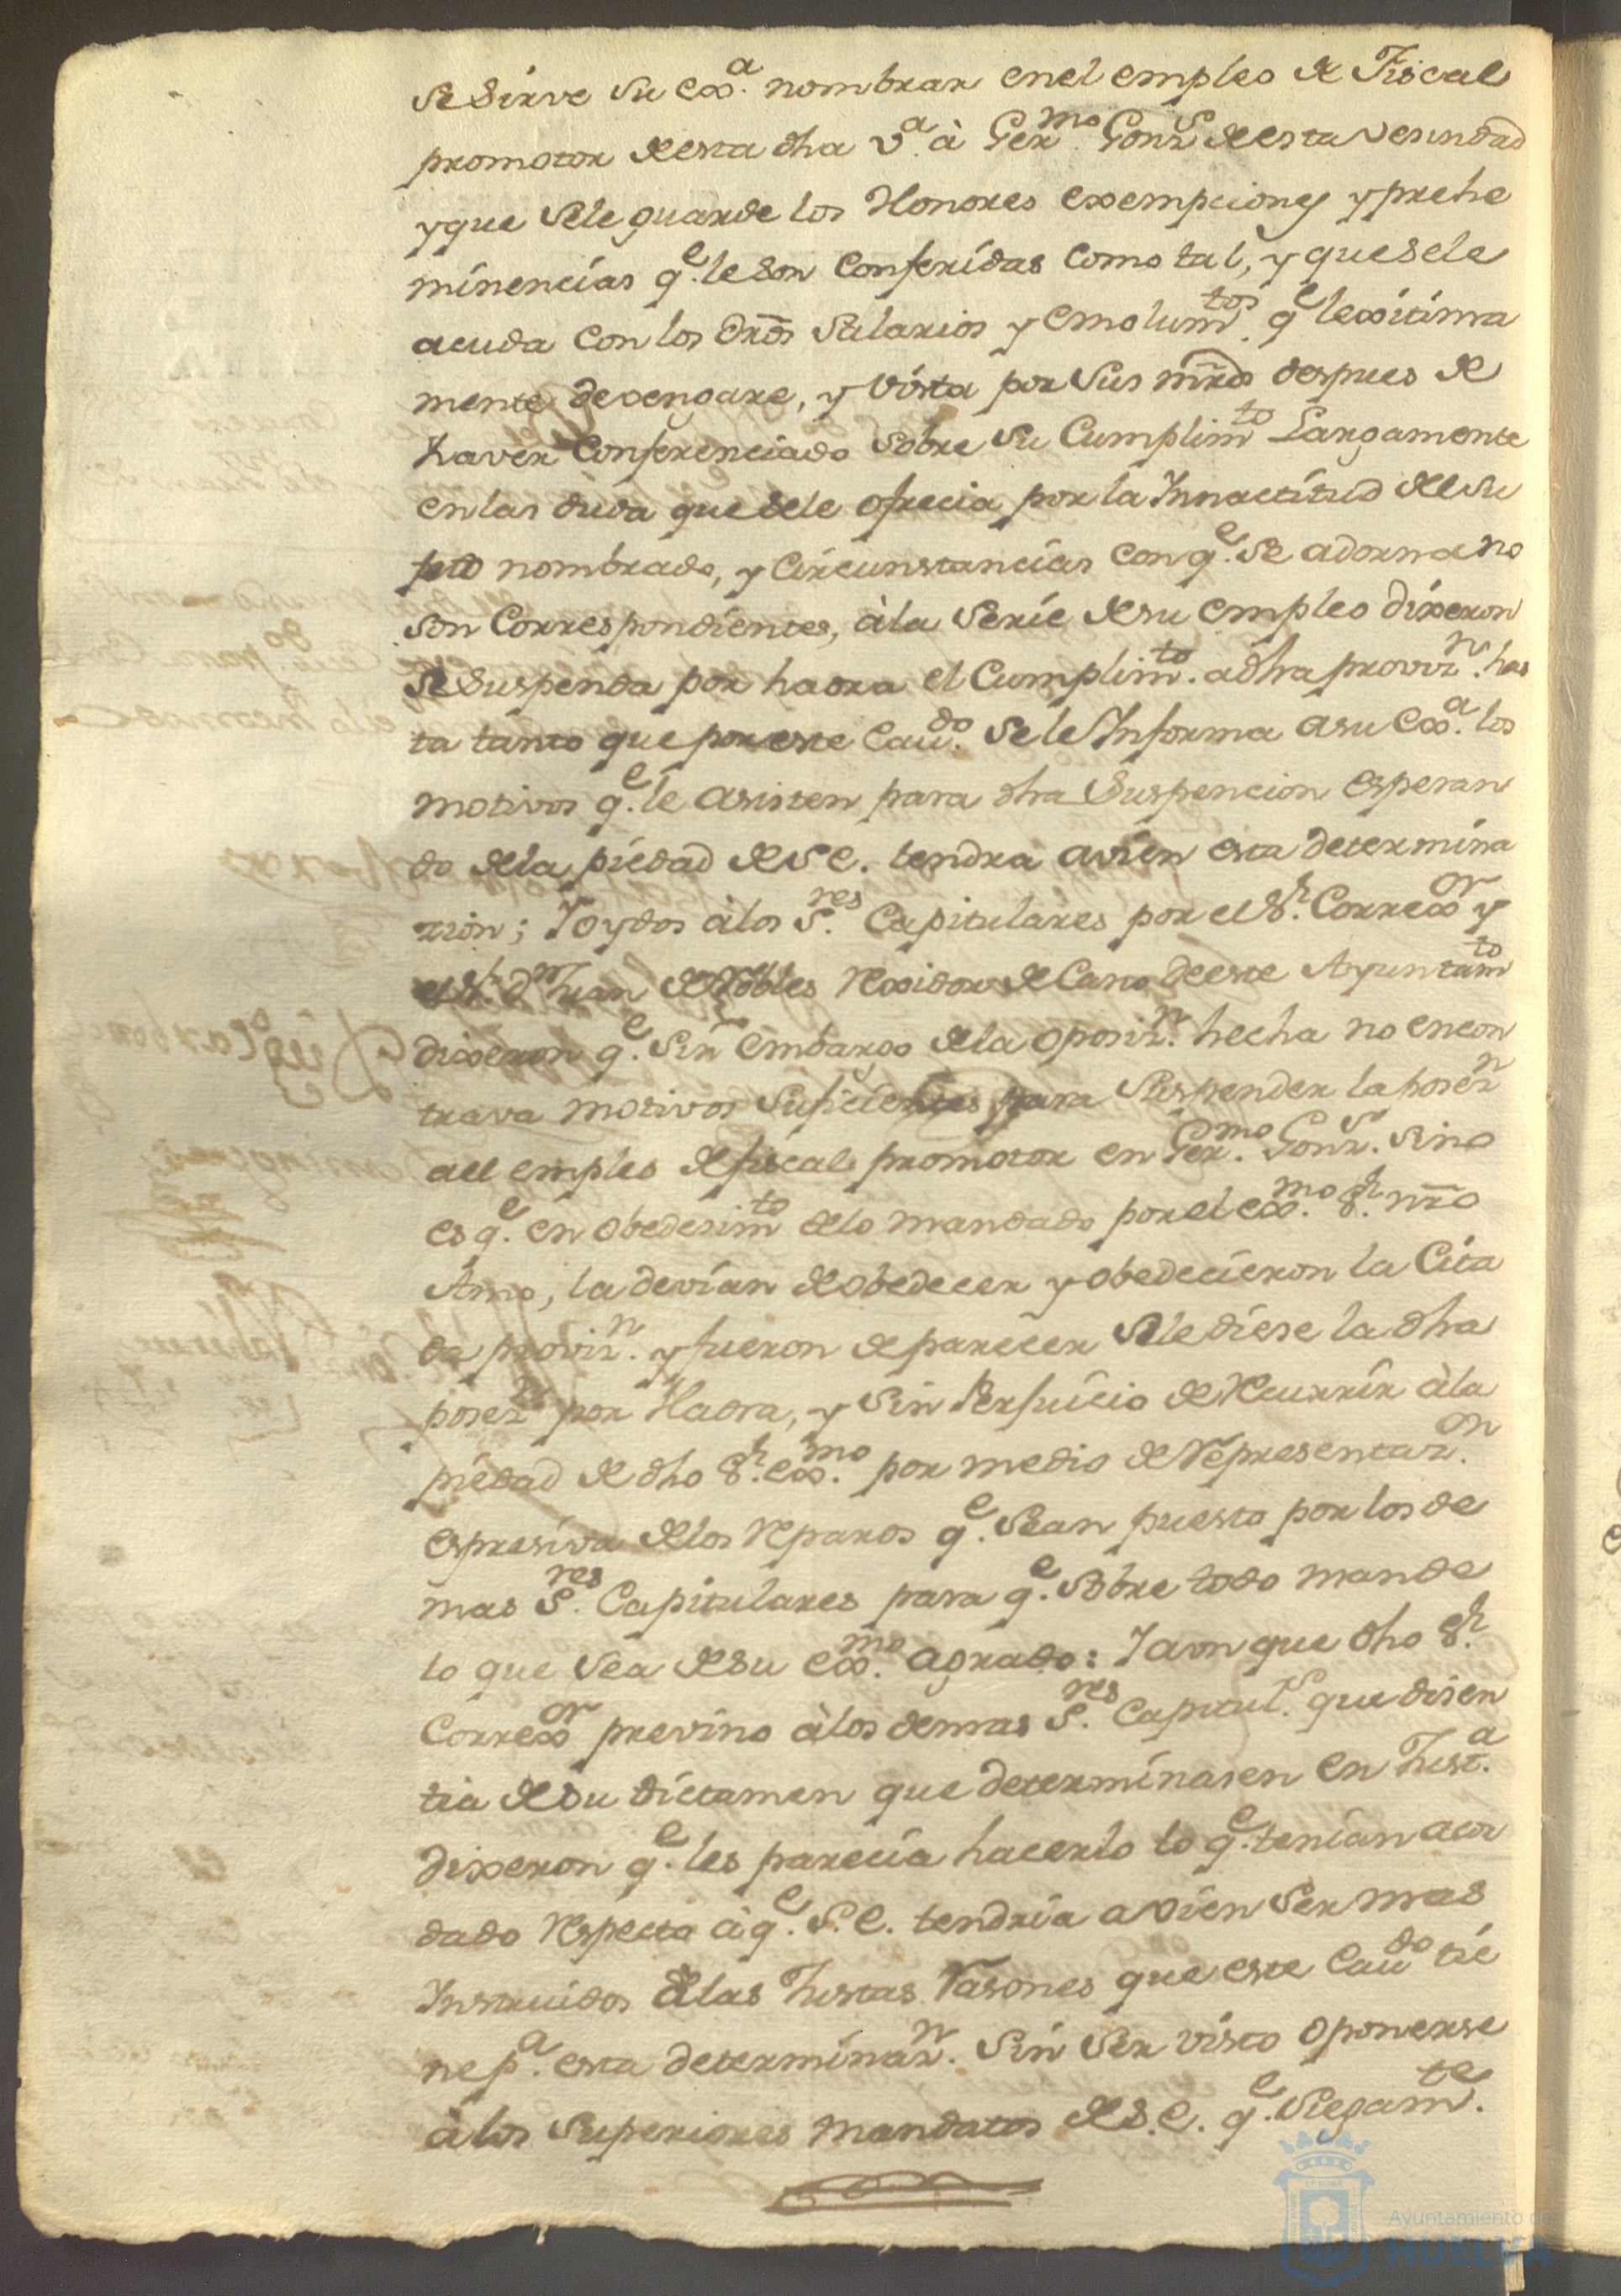 se Sirve su exª. nombrar en el empleo de Fiscal
promotor de esta dha vª. à Germo. Gonz.s de esta Vesindad
y que se le guarde los Honores exempciones y prehe
minencias qe. le son Conferidas como tal, y que se le
acuda con los dros Salarios y emolumtos. qe lexitima
mente devengare, y vista por sus mrds despues de
haver Conferenciado sobre su Cumplimto Largamente
en las duda que se le ofrecia por la Innactitud de su
jeto nombrado, y Circunstancias con qe. se adorna no
son Correspondientes, à la serie de su empleo dixeron
se suspenda por haora el Cumplimto. a dha proviz.n has
ta tanto que por este Cavdo. se le Informa a su exª. los
motivos qe. le asisten para dha Suspencion esperan
do de la piedad de S e. tendra a vien esta determina
zion; Y oydos à los S.res Capitulares por el S.r Correxor y
el S.r d.n Juan de Robles Rexidor de Cano de este Ayuntamto
dixeron qe. sin embargo de la oposiz.n hecha no encon
trava motivos suficientes para suspender la posez.n
a el empleo de fiscal promotor en Germo. Gonz.s sino
es qe. en obedesimto de lo mandado por el exmo. S.r nro
Amo, la devian de obedecer y obedecieron la Cita
da proviz.n y fueron de parecer se le diese la dha
posez.n por Haora, y sin Perjuicio de Recurrir à la
piedad de dho S.r exmo. por medio de Representaz.on
espresiva de los Reparos qe. sean puesto por los de
mas S.res Capitulares para qe. sobre todo mande
lo que sea de su exmo. agrado: Y aun que dho S.r
Correxor previno à los demas S.res Capitul.s que disen
tia de su dictamen que determinasen en Justª.
dixeron qe. les parecia hacerlo lo qe. tenian acor
dado Respecto à qe. S. e. tendria a vien ser mas
Instruidos de las Justas Rasones que este Cavdo tie
ne pª. esta determinaz.n sin ser visto oponerse
à los superiores mandatos de S. e. qe. siegamte.
Ayuntamiento de
HUELVA